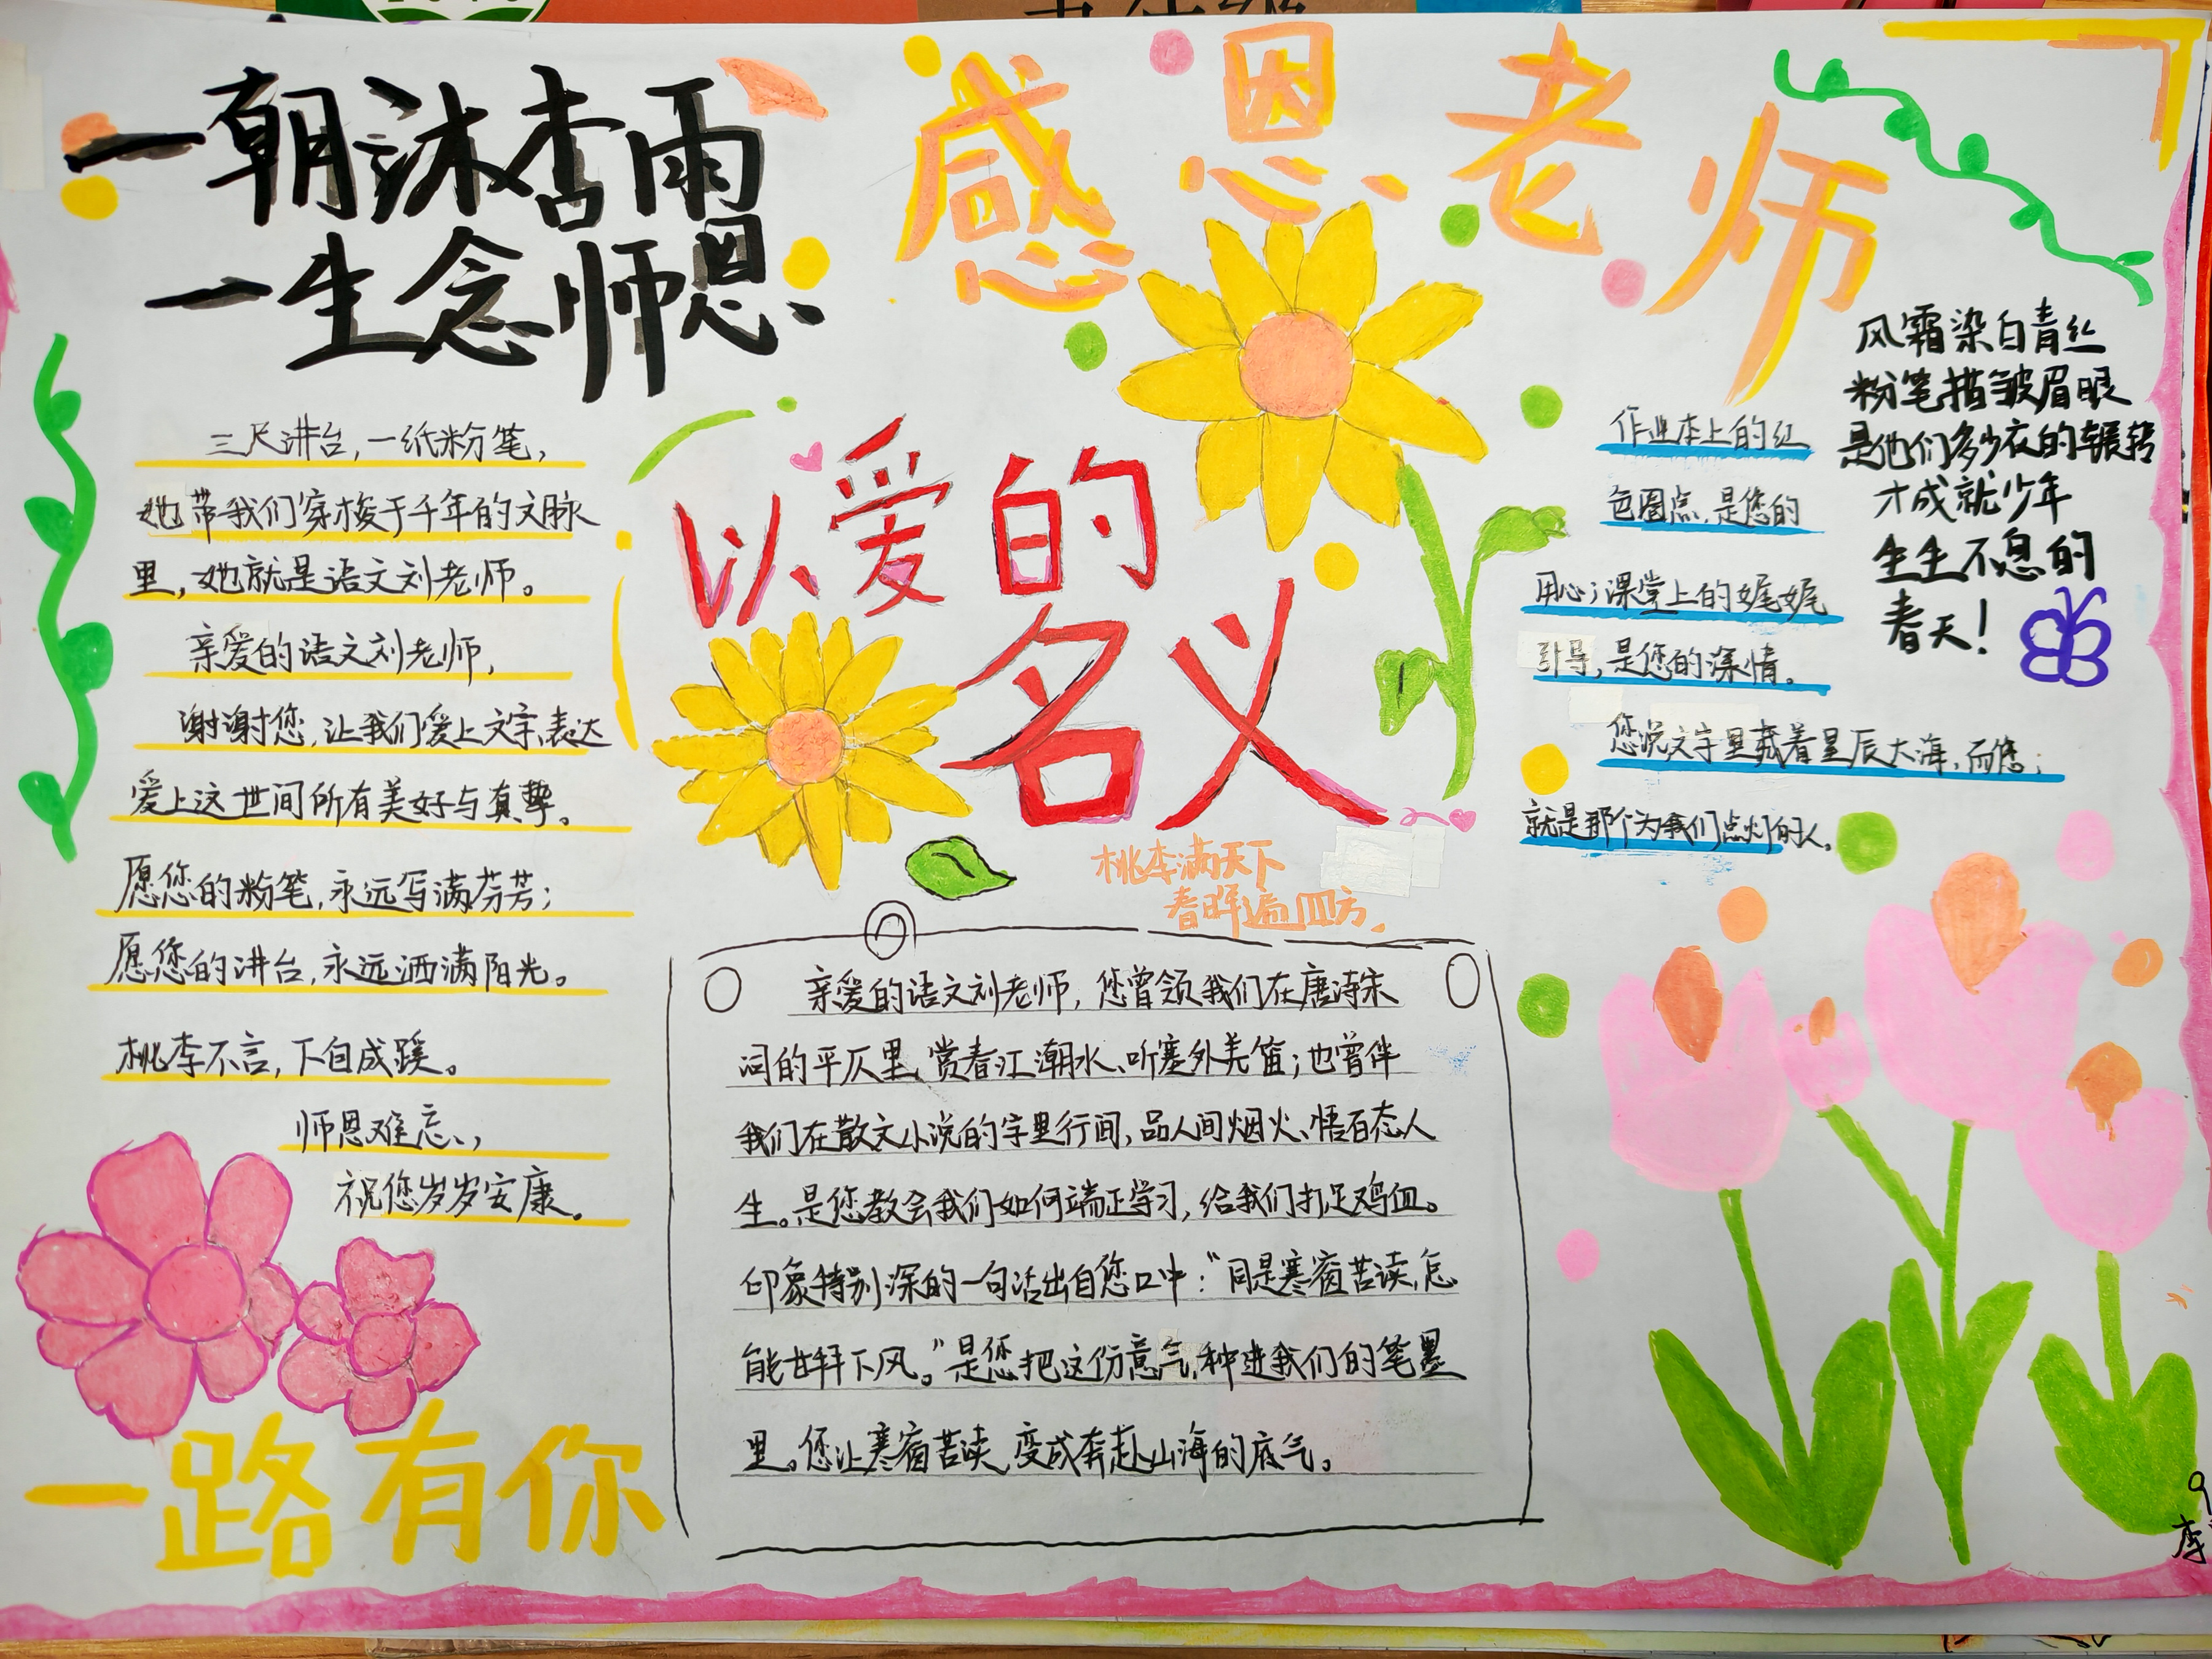 一朝沐杏雨
一生念师恩
感恩老师
三尺讲台，一纸粉笔，
她带我们穿梭于千年的文脉
里，她就是语文刘老师。
亲爱的语文刘老师，
谢谢您，让我们爱上文字、表达
爱上这世间所有美好与真挚。
愿您的粉笔，永远写满芬芳；
愿您的讲台，永远洒满阳光。
桃李不言，下自成蹊。
师恩难忘，
祝您岁岁安康。
一路有你
以爱的
名义
桃李满天下
春晖遍四方.
亲爱的语文刘老师，您曾领我们在唐诗宋
词的平仄里、赏春江潮水、听塞外羌笛；也曾伴
我们在散文小说的字里行间，品人间烟火、悟百态人
生。是您教会我们如何端正学习，给我们打足鸡血。
印象特别深的一句话出自您口中：“同是寒窗苦读，怎
能甘拜下风。”是您把这份意气，种进我们的笔墨
里。您让寒窗苦读，变成奔赴山海的底气。
作业本上的红
色圈点，是您的
用心；课堂上的娓娓
引导，是您的深情。
您说文字里藏着星辰大海，而您；
就是那个为我们点灯的人。
风霜染白青丝
粉笔描皱眉眼
是他们多少衣的辗转
才成就少年
生生不息的
春天！